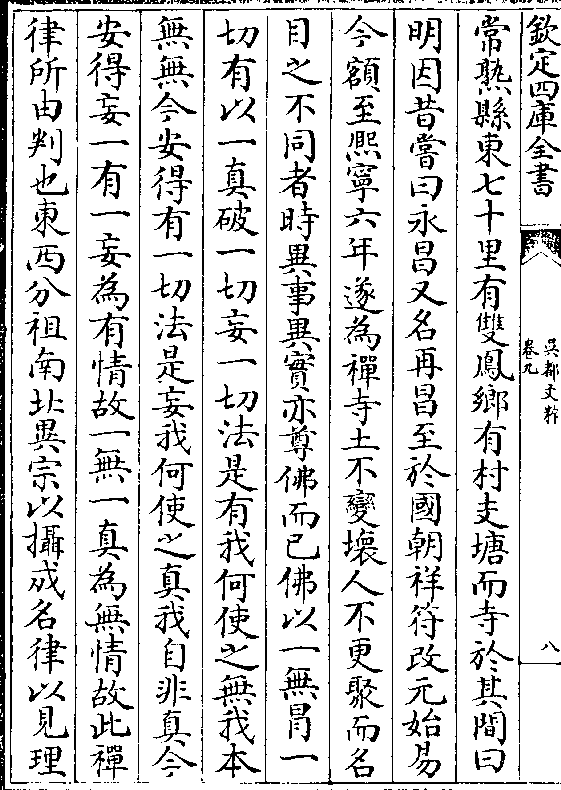 欽定四庫全書
吳都文粹
卷九
八
常熟縣東七十里有雙鳳鄉有村支塘而寺於其間曰
明因昔嘗曰永昌又名再昌至於國朝祥符改元始易
今額至熈寧六年遂為禪寺土不變壞人不更聚而名
目之不同者時異事異實亦尊佛而已佛以一無冐一
切有以一真破一切妄一切法是有我何使之無我本
無無今安得有一切法是妄我何使之真我自非真今
安得妄一有一妄為有情故一無一真為無情故此禪
律所由判也東西分祖南北異宗以攝戒名律以見理